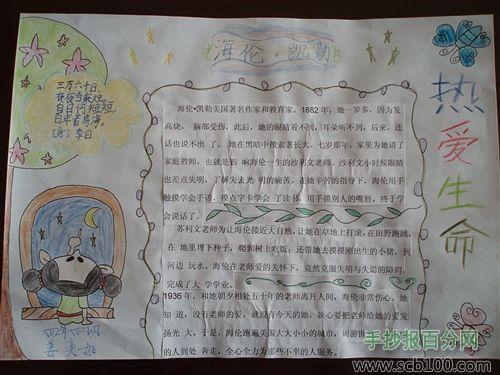 海伦·凯勒
热爱生命
三万六千日，
夜夜当秉烛。
白日何短短，
百年苦易满。
[唐] 李白
海伦·凯勒美国著名作家和教育家，1882年，她一岁多，因为发
高烧， 脑部受伤，此后，她的眼睛看不到，耳朵听不到，后来，连
话也说不出 了。 她在黑暗中摸索著长大。七岁那年，家里为她请了
家庭教师，也就是影 响海伦一生的沙利文老师。沙利文小时候眼睛
也差点失明，了解失去光 明的痛苦。在她辛苦的指导下，海伦用手
触摸学会手语，摸点字卡学会 了读书，用手摸别人的嘴唇，终于学
会说话了。
苏利文老师为让海伦接近大自然，让她在草地上打滚，在田野跑跳，
在 地里埋下种子，爬到树上吃饭；还带她去摸摸刚出生的小猪，到
河边 玩水。海伦在老师爱的关怀下，竟然克服失明与失聪的障碍，
完成了大 学学业。
1936年，和她朝夕相处五十年的老师离开人间，海伦非常伤心。她
知 道，没有老师的爱，就没有今天的她，决心要把老师给她的爱发
扬光 大。于是，海伦跑遍美国大大小小的城市，周游世
的人到处 奔走，全心全力为那些不幸的人服务。
四年四班
手抄报百分网
www.scb100.com